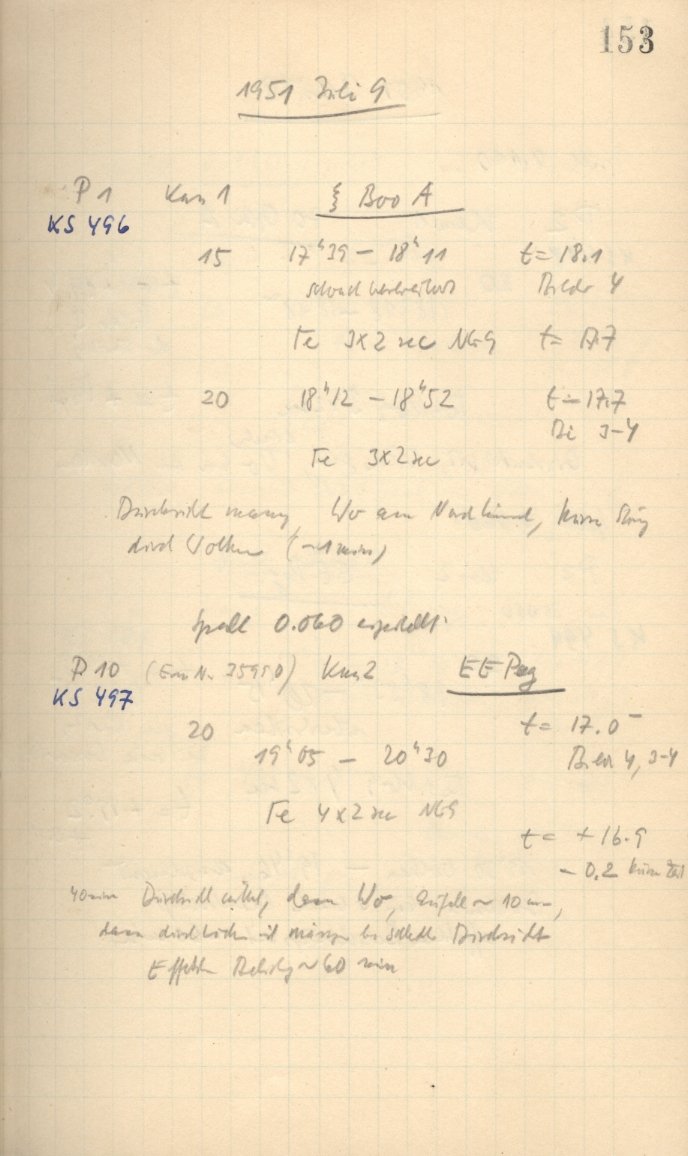 153
1951 Juli 9
P 1 Kam 1 ξ Boo A
KS 496
15 17ʰ39 – 18ʰ11 t = 18.1
schwach verbreitert Bilder 4
Fe 3x2 sec NG9 t = 17.7
20 18ʰ12 – 18ʰ52 t = 17.7
Bi 3-4
Fe 3x2 sec
Durchsicht mässig, Wo am Nordhimmel, kurze Störg
durch Wolken (~1 min)
Spalt 0.060 eingestellt
P 10 (Em Nr. 35950) Kam 2 EE Peg
KS 497
20 t = 17.0
19ʰ05 – 20ʰ30 Bilder 4, 3-4
Fe 4x2 sec NG9
t = +16.9
– 0.2 kurze Zeit
40 min Durchsicht mittel, dann Wo, Ausfall ~ 10 min,
dann durch Wolken mit mässiger bis schlechter Durchsicht
Effektive Belichtg ~ 60 min